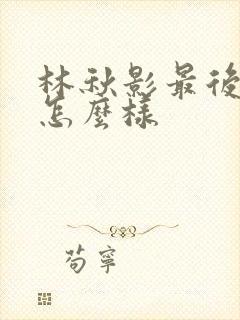 林秋影最後
怎麼樣
苟寧